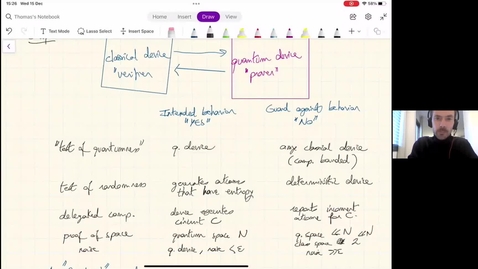 15:26 Wed 15 Dec
58%
Thomas's Notebook
Home
Insert
Draw
View
Text Mode
Lasso Select
Insert Space
classical device
"verifier"
quantum device
"prover"
Intended behavior
"YES"
Guard against behavior
"NO"
"test of quantumness"
q. device
any classical device
(comp. bounded)
test of randomness
generates outcomes
that have entropy
deterministic device
delegated comp.
device executes
circuit C
reports incorrect
outcome for C.
proof of space
quantum space N
q. space ≪ N
class space
noise
q. device, noise < ε
noise ≫ ε